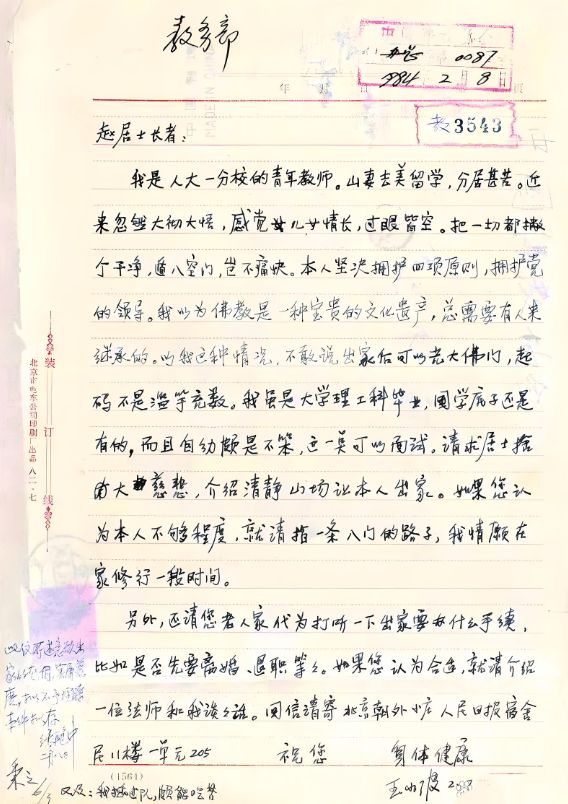 教务部
0087
1984 2月8日
年 月 日
教3543
赵居士长者：
我是人大一分校的青年教师。山妻去美留学，分居甚苦。近
来忽然大彻大悟，感觉女儿女情长，过眼皆空。把一切都撇
个干净，遁入空门，岂不痛快。本人坚决拥护四项原则，拥护党
的领导。我以为佛教是一种宝贵的文化遗产，总需要有人来
继承的。以我这种情况，不敢说出家后可以光大佛门，起
码不是滥竽充数。我虽是大学理工科毕业，国学底子还是
有的，而且自幼颇是不笨，这一点可以面试。请求居士捨
大慈悲，介绍清静山场让本人出家。如果您认
为本人不够程度，就请指一条入门的路子，我情愿在
家修行一段时间。
另外，还请您老人家代为打听一下出家要办什么手续，
比如是否先要离婚、退职等々。如果您认为合适，就请介绍
一位法师和我谈々话。回信请寄北京朝外小庄人民日报宿舍
民11楼一单元205 祝您 身体健康
王
(1564)
又及：我插过队，颇能吃苦
装订线
北京市电车公司印刷厂出品 八二·七